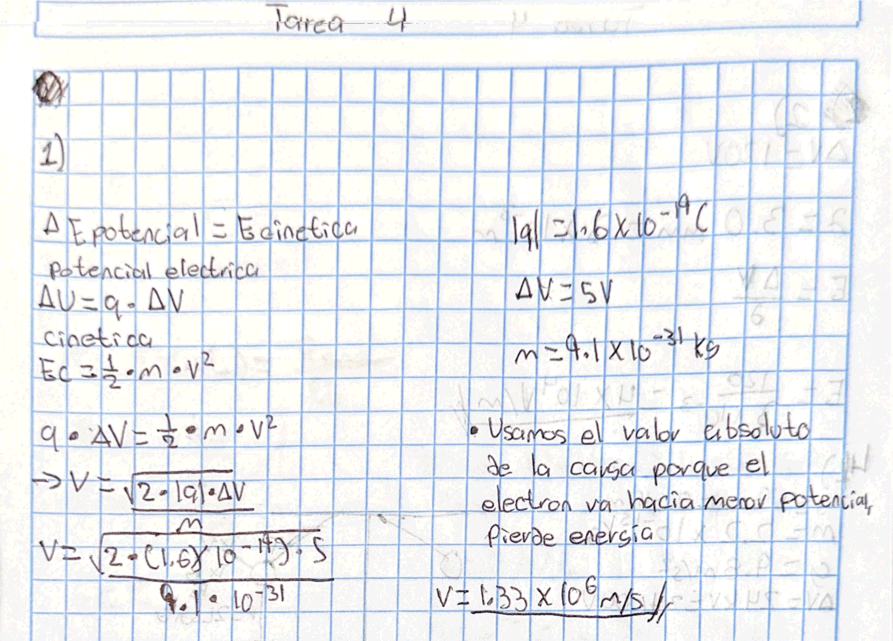 Tarea 4
1)
Δ Epotencial = Ecinetica
potencial electrica
ΔU = q · ΔV
cinetica
Ec = 1/2 · m · v²
q · ΔV = 1/2 · m · v²
→ V = √(2 · |q| · ΔV / m)
V = √(2 · (1.6 × 10⁻¹⁹) · 5 / 9.1 · 10⁻³¹)
|q| = 1.6 × 10⁻¹⁹ C
ΔV = 5V
m = 9.1 × 10⁻³¹ kg
• Usamos el valor absoluto
de la carga porque el
electron va hacia menor potencial,
pierde energia
V = 1.33 × 10⁶ m/s //